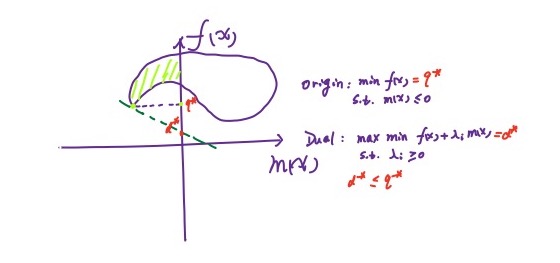 f(x)
q*
d*
m(x)
Origin: min f(x) = q*
s.t. m(x) ≤ 0
Dual: max min f(x) + λi m(x) = d*
s.t. λi ≥ 0
d* ≤ q*